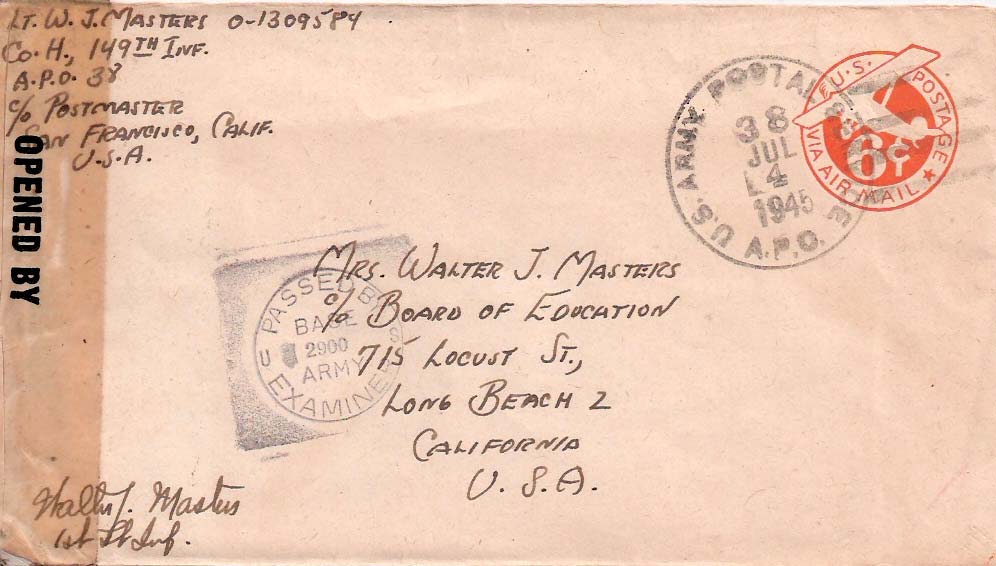 LT. W. J. MASTERS O-1309584
CO. H., 149TH INF.
A.P.O. 38
c/o POSTMASTER
SAN FRANCISCO, CALIF.
U.S.A.
OPENED BY
U.S. ARMY POSTAL
38
JUL
4
1945
A.P.O.
U.S. POSTAGE
6¢
VIA AIR MAIL
PASSED BY
BASE
2900
ARMY
EXAMINER
U S
MRS. WALTER J. MASTERS
c/o BOARD OF EDUCATION
715 LOCUST ST.,
LONG BEACH 2
CALIFORNIA
U.S.A.
Walter J. Masters
1st Lt Inf.